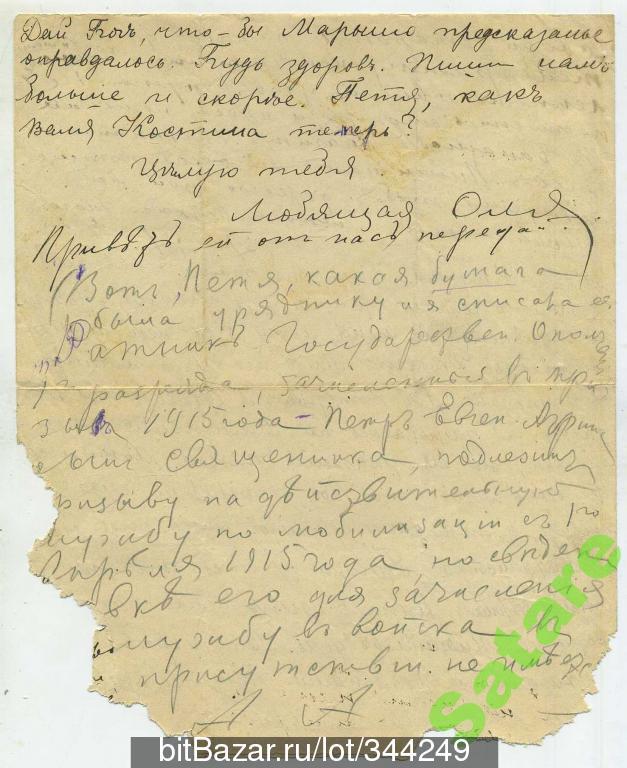 Дай Богъ, что-бы Марьино предсказанье
оправдалось. Будь здоровъ. Пиши намъ
больше и скорѣе. Петя, какъ
Валя Костина теперь?
Цѣлую тебя
Любящая Оля.
Привѣтъ ей отъ насъ передай.
Вотъ, Петя, какая бумага
была уряднику и я списала ее.
Государствен. Опол
разряда, зачисленный въ при
зывъ 1915 года - Петръ Евген.
сынъ священника, подлежитъ
призыву на дѣйствительную
службу по мобилизаціи съ 1го
Апрѣля 1915 года, но свѣдѣн
его для зачисленія
службу въ войска въ
присутствіи не имѣе
Satare
bitBazar.ru/lot/344249